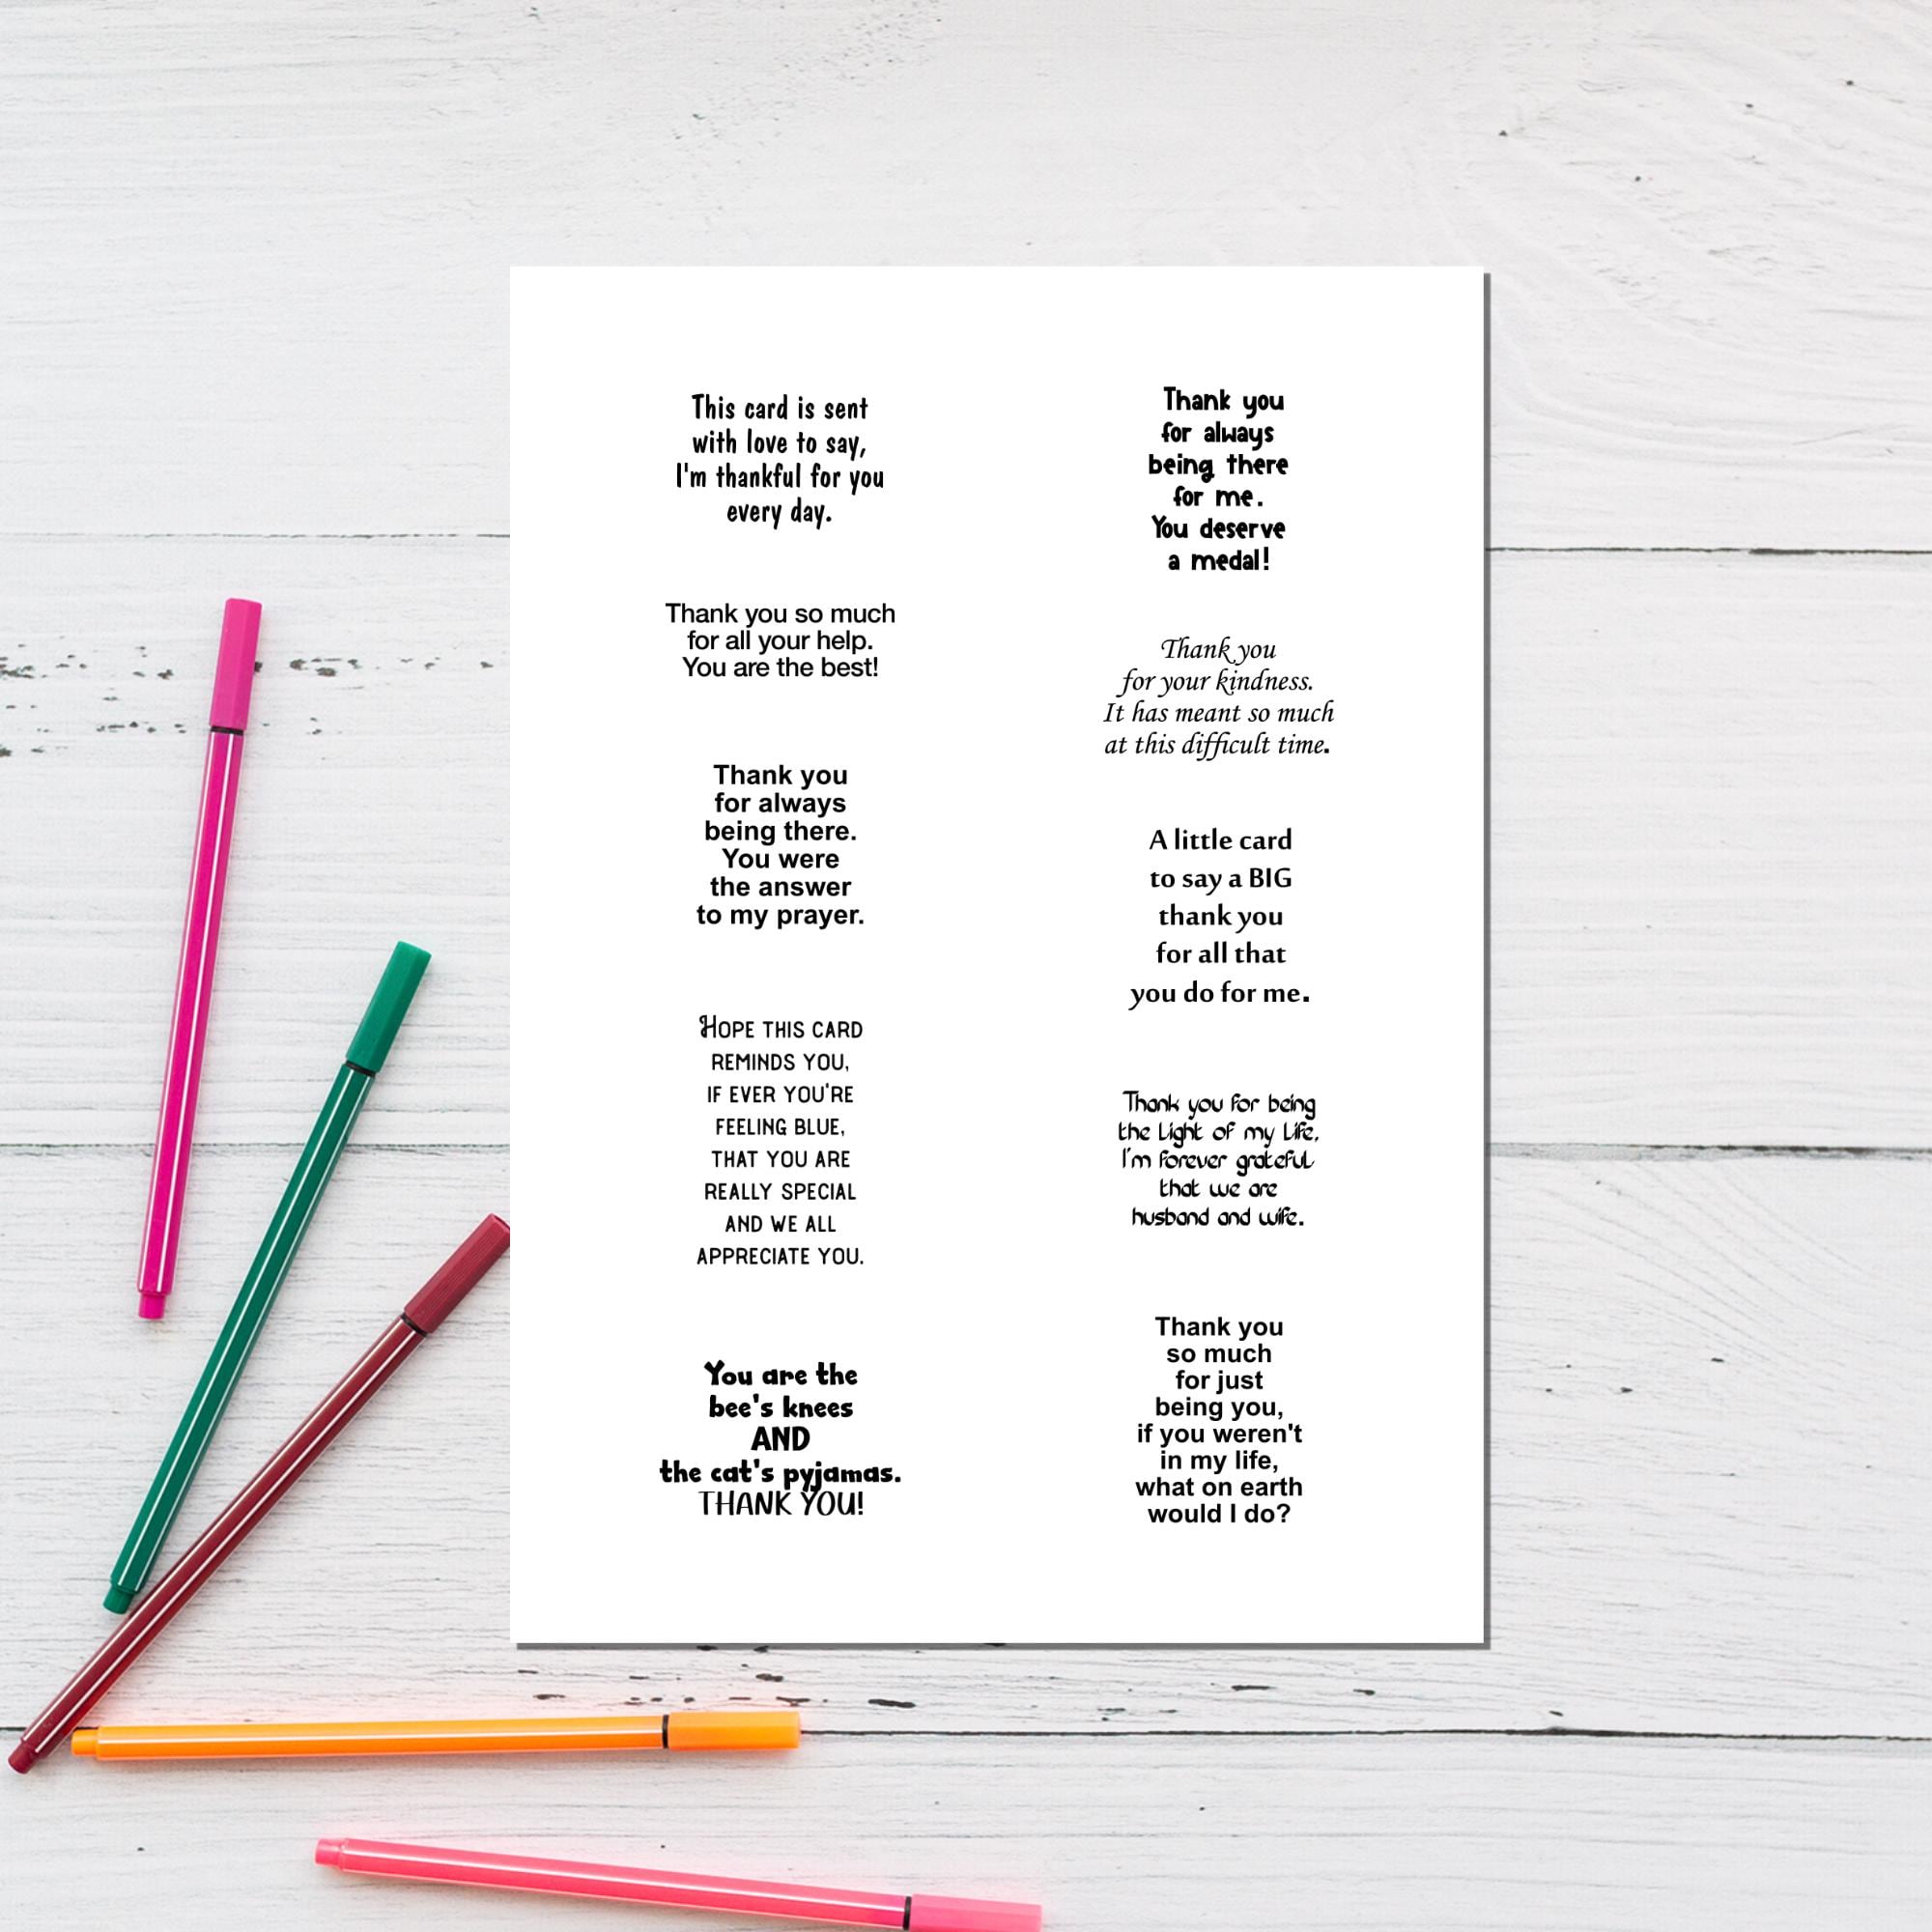 This card is sent
with love to say,
I'm thankful for you
every day.
Thank you so much
for all your help.
You are the best!
Thank you
for always
being there.
You were
the answer
to my prayer.
HOPE THIS CARD
REMINDS YOU,
IF EVER YOU'RE
FEELING BLUE,
THAT YOU ARE
REALLY SPECIAL
AND WE ALL
APPRECIATE YOU.
You are the
bee's knees
AND
the cat's pyjamas.
THANK YOU!
Thank you
for always
being there
for me.
You deserve
a medal!
Thank you
for your kindness.
It has meant so much
at this difficult time.
A little card
to say a BIG
thank you
for all that
you do for me.
Thank you for being
the light of my life,
I'm forever grateful
that we are
husband and wife.
Thank you
so much
for just
being you,
if you weren't
in my life,
what on earth
would I do?